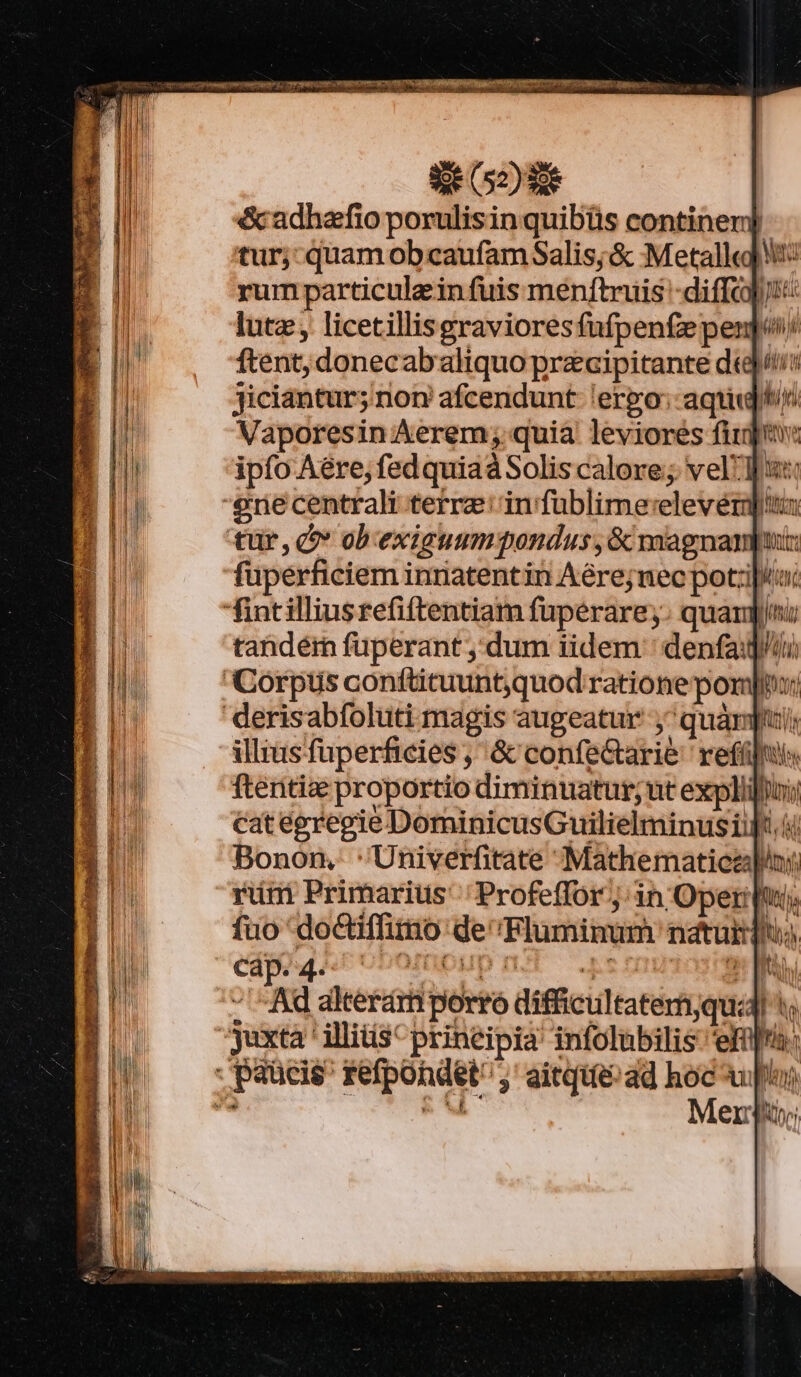 (52)
& adhæsio porulis in quibus continen
tur; quam ob causam Salis, & Metallo
rum particulæ in suis menstruis disso
lutæ, licet illis graviores suspensæ per
stent, donec ab aliquo præcipitante de
jiciantur; non ascendunt ergo aquei
Vapores in Aerem, quia leviores sint
ipso Aëre, sed quia à Solis calore, vel
gne centrali terræ in sublime eleven
tur, & ob exiguum pondus, & magnam
superficiem innatent in Aëre; nec pot
sint illius resistentiam superare; quam
tandem superant, dum iidem densa
Corpus constituunt, quod ratione pon
deris absoluti magis augeatur, quàm
illius superficies, & consectariè resi
stentiæ proportio diminuatur, ut expli
cat egregiè Dominicus Guilielminus i
Bonon. Universitate Mathematica
rum Primarius Professor, in Oper
suo doctissimo de Fluminum natur
cap. 4.
Ad alteram porro difficultatem, quæ
juxta illius principia insolubilis est
paucis respondet, aitque ad hoc u
Men